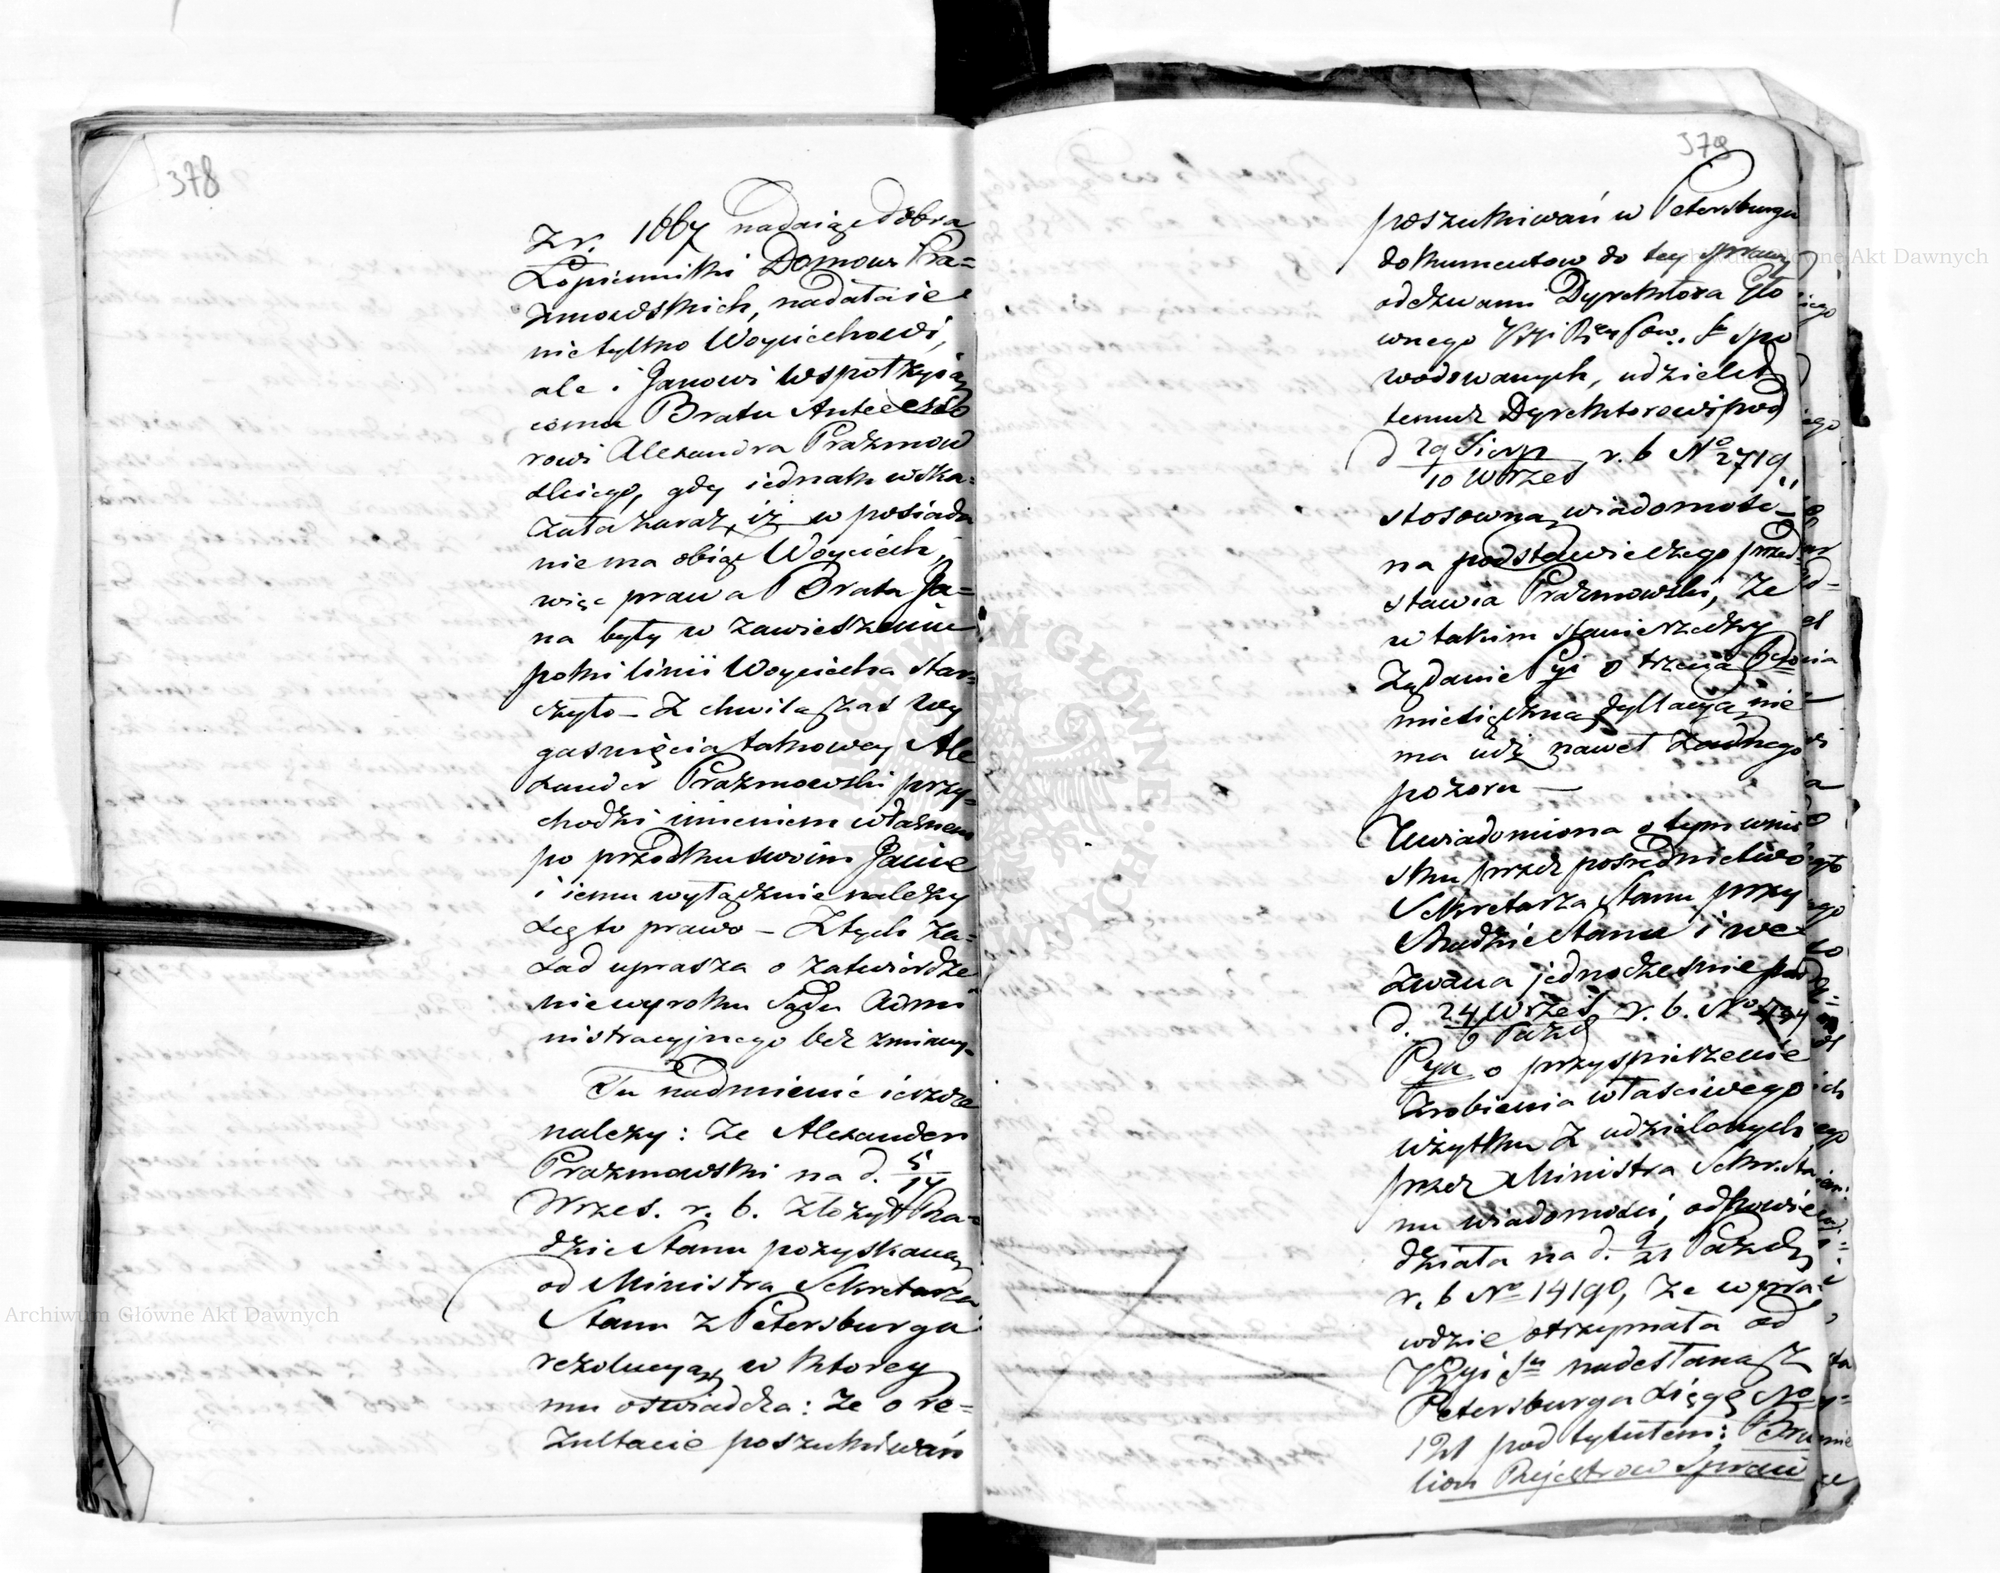 378
z r. 1667 nadaiące dobra
Łopienniki Domowi Pra=
zmowskich, nadała ie
nietylko Woyciechowi,
ale i Janowi współżyią
cemu Bratu Anteceso
rowi Alexandra Prażmow
skiego, gdy iednak wska=
zała zaraz, iż w posiada
nie ma obiąć Woyciech,
więc prawa Brata Ja=
na były w zawieszeniu
poki linii Woyciecha star=
czyło – Z chwilą zaś wy
gaśnięcia takowey Ale
xander Prażmowski przy=
chodzi imieniem własnem
po przodku swoim Janie
i iemu wyłącznie należy
się to prawo – Z tych za=
sad uprasza o zatwierdze
nie wyroku Sądu Admi
nistracyjnego bez zmiany.
Tu nadmienić ieszcze
należy: że Alexander
Prażmowski na d. 5/17
Wrześ. r. b. złożył Ra=
dzie Stanu pozyskaną
od Ministra Sekretarza
Stanu z Petersburga
rezolucyą, w ktorey
mu oświadcza: że o re=
zultacie poszukiwań
379
poszukiwań w Petersburgu
dokumentow do tey sprawy
odezwami Dyrektora Gło
wnego
wodowanych, udzielił
temuż Dyrektorowi pod
d 29 Sierp/10 Wrześ r. b No 2719
stosowną wiadomość
na podstawie czego przed=
stawia Prażmowski, że
w takim stanie rzeczy
Żądanie o trzecią
miesięczną dyllacyą nie
ma iuż nawet żadnego
pozoru —
Uwiadomiona o tym wnio
sku przez pośrednictwo
Sekretarza Stanu przy
Radzie Stanu i we=
zwana jednocześnie pod
d. 24 Wrześ/6 Paźd r. b. No
o przyspieszenie
zrobienia właściwego
użytku z udzielonych
przez Ministra Sekr. Sta
nu wiadomości, odpowie
działa na d. 9/21 Paźdz
r. b No 14190, że wpra=
wdzie otrzymała od
nadesłaną z
Petersburga xięgę No
121 pod tytułem:
Rejestrow Spraw